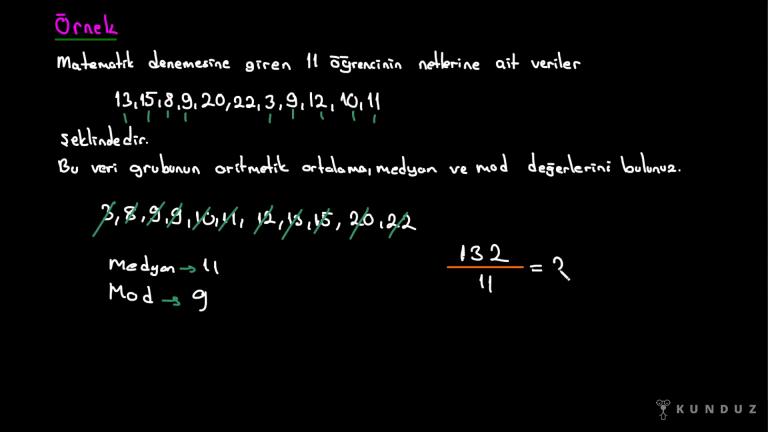 Örnek
Matematik denemesine giren 11 öğrencinin netlerine ait veriler
13, 15, 8, 9, 20, 22, 3, 9, 12, 10, 11
şeklindedir.
Bu veri grubunun aritmetik ortalama, medyan ve mod değerlerini bulunuz.
3, 8, 9, 9, 10, 11, 12, 13, 15, 20, 22
Medyan → 11
Mod → 9
132
11
= ?
KUNDUZ